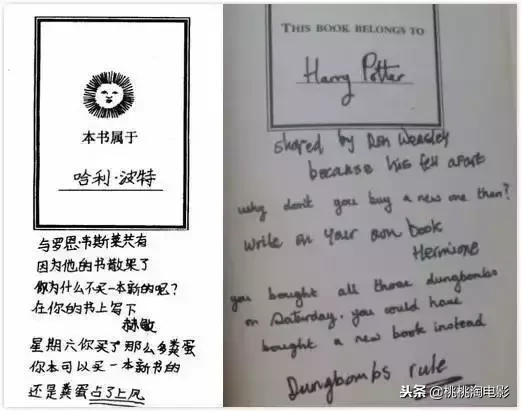 本书属于
哈利·波特
与罗恩·韦斯莱共有
因为他的书散架了
你为什么不买一本新的呢?
在你的书上写下
赫敏
星期六你买了那么多粪蛋
你本可以买一本新书的
还是粪蛋占了上风
THIS BOOK BELONGS TO
Harry Potter
shared by Ron Weasley
because his fell apart
why don't you buy a new one then?
write on your own book
Hermione
you bought all those dungbombs
on Saturday. you could have
bought a new book instead
Dungbombs rule
头条 @桃桃淘电影